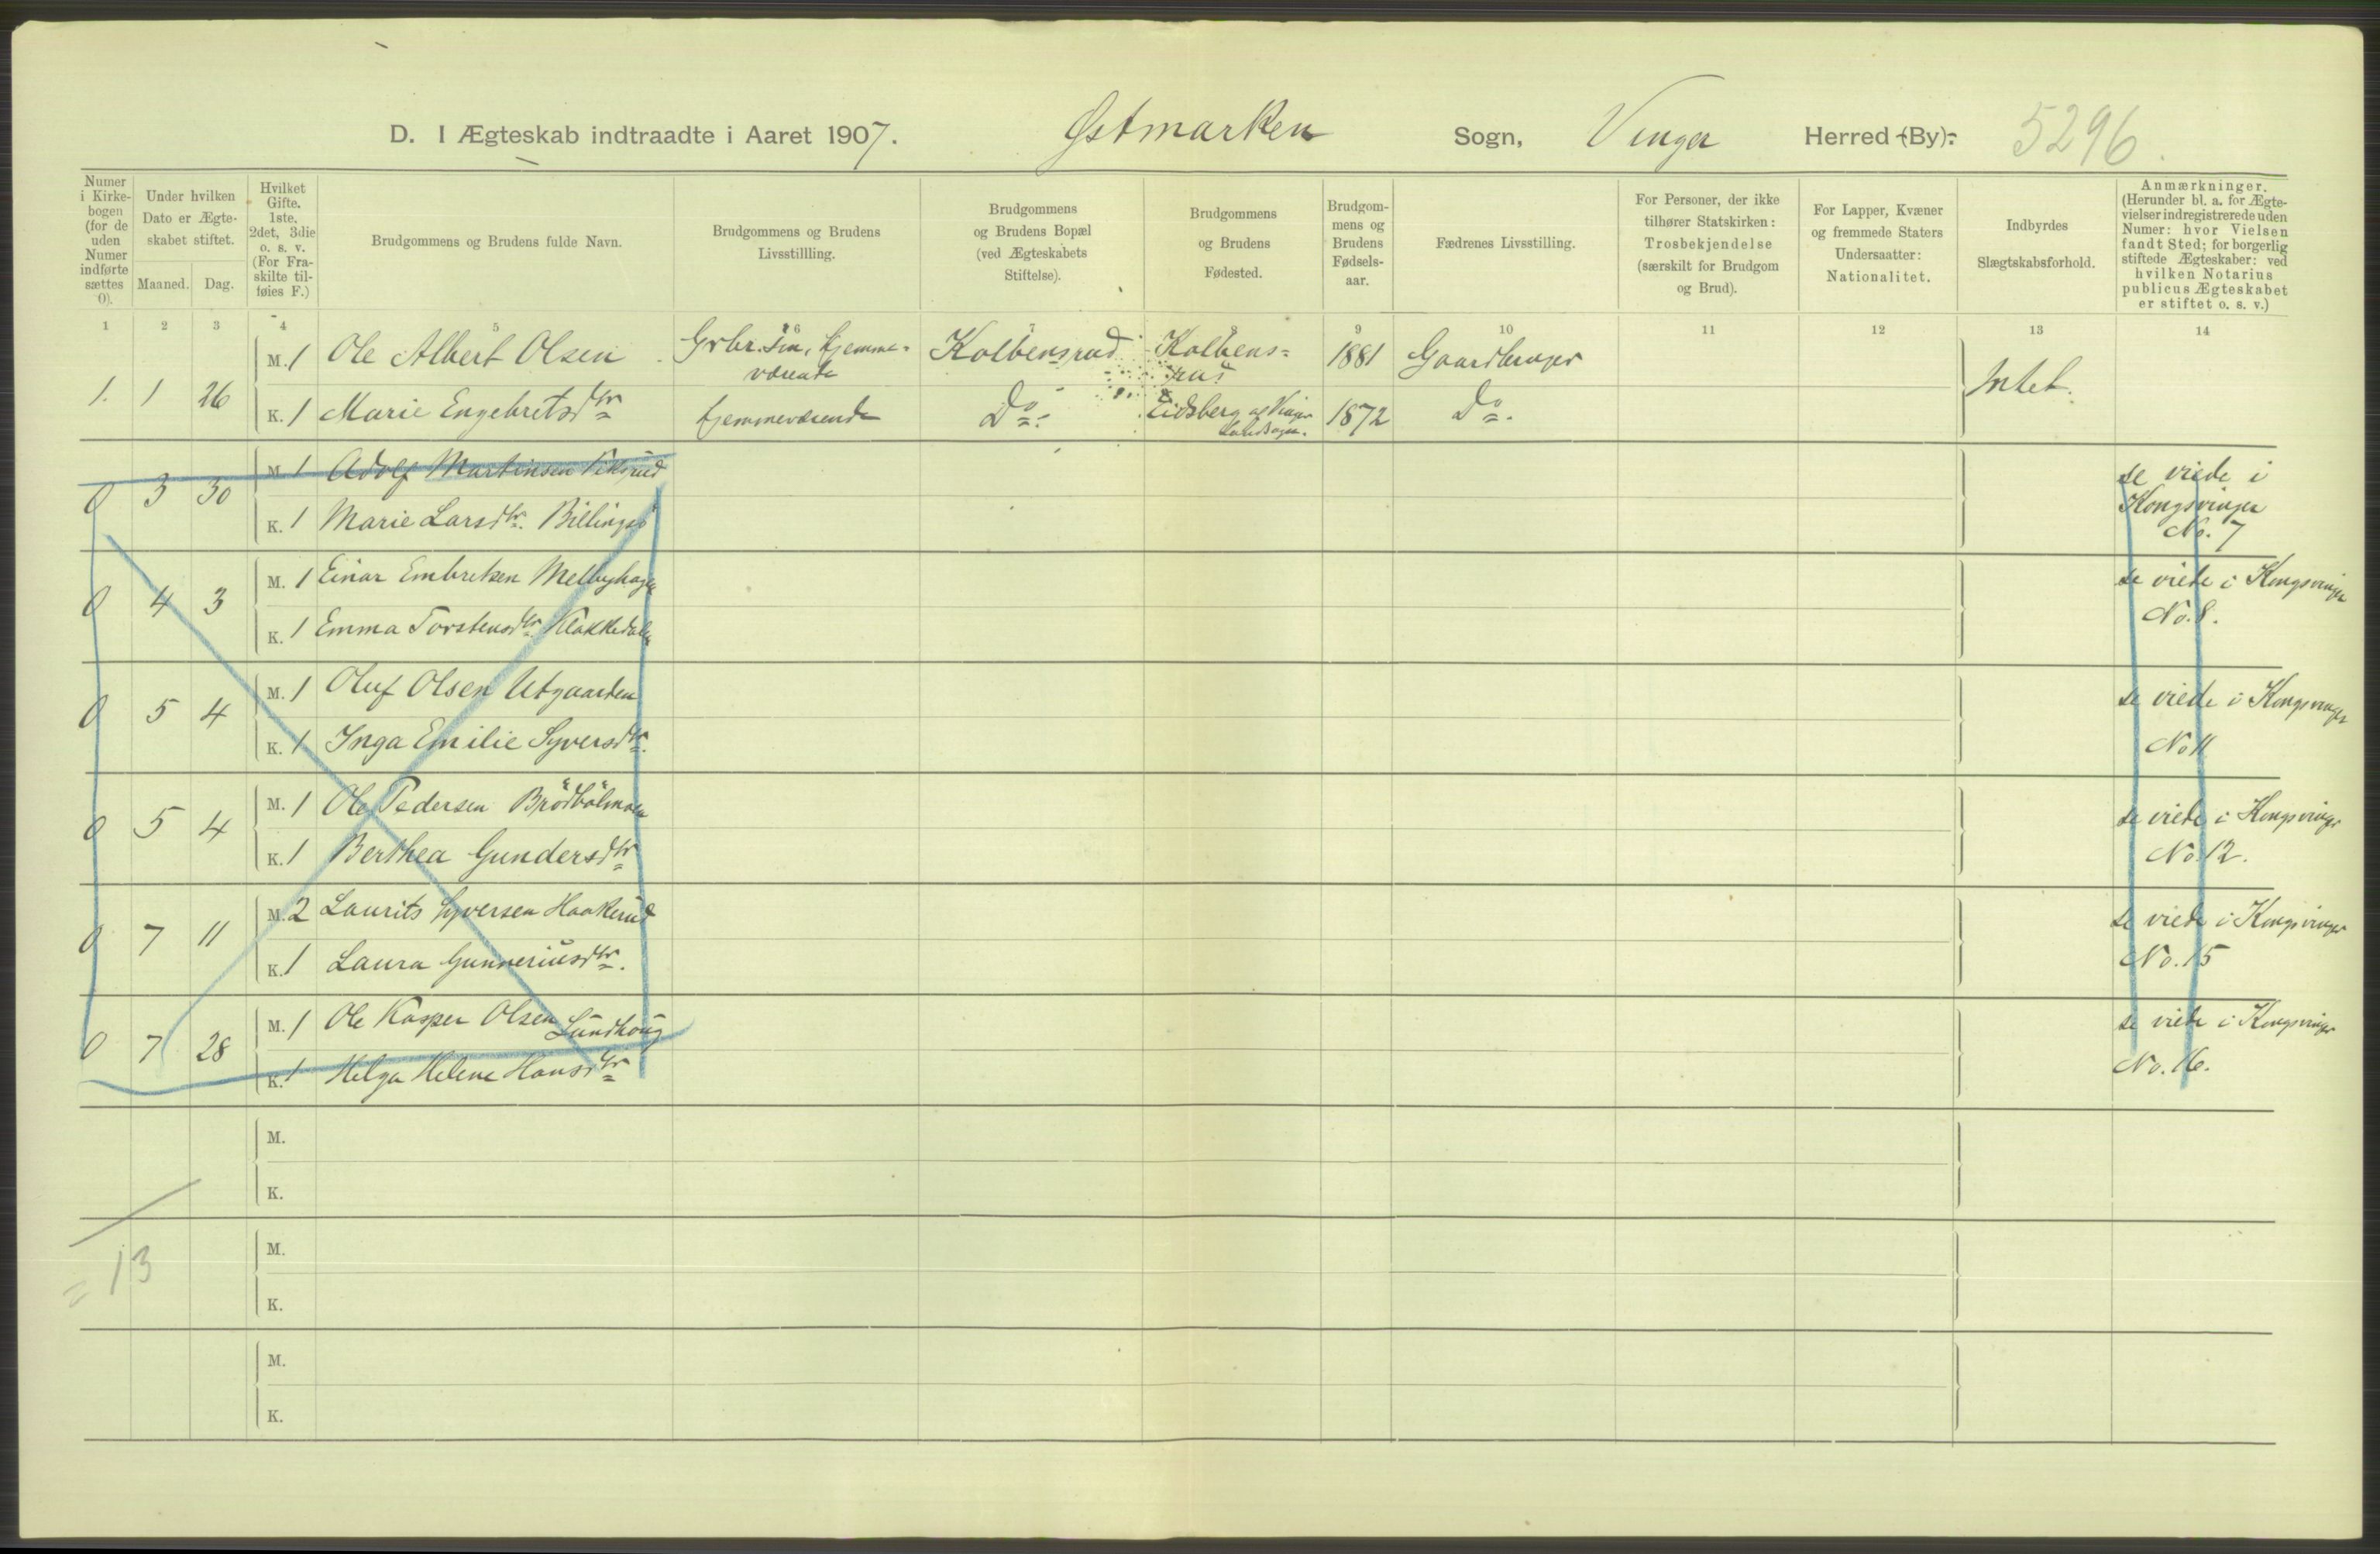 D. I Ægteskab indtraadte i Aaret 1907. Østmarken Sogn, Vinger Herred (By): 5296.
Numer i Kirkebogen (for de uden Numer indførte sættes 0).
Under hvilken Dato er Ægteskabet stiftet.
Maaned. Dag.
Hvilket Gifte. 1ste, 2det, 3die o. s. v. (For Fraskilte tilføies F.)
Brudgommens og Brudens fulde Navn.
Brudgommens og Brudens Livsstillling.
Brudgommens og Brudens Bopæl (ved Ægteskabets Stiftelse).
Brudgommens og Brudens Fødested.
Brudgommens og Brudens Fødselsaar.
Fædrenes Livsstilling.
For Personer, der ikke tilhører Statskirken: Trosbekjendelse (særskilt for Brudgom og Brud).
For Lapper, Kvæner og fremmede Staters Undersaatter: Nationalitet.
Indbyrdes Slægtskabsforhold.
Anmærkninger. (Herunder bl. a. for Ægtevielser indregistrerede uden Numer: hvor Vielsen fandt Sted; for borgerlig stiftede Ægteskaber: ved hvilken Notarius publicus Ægteskabet er stiftet o. s. v.)
1 2 3 4 5 6 7 8 9 10 11 12 13 14
1. 1 26 M. 1 Ole Albert Olsen Grbr. søn, hjemmeværende Kolbensrud Kolbens=rud 1881 Gaardbruger Intet.
K. 1 Marie Engebretsdtr hjemmeværende Do. Eidsberg 1872 Do.
0 3 30 M. 1 Adolf Martinsen
K. 1 Marie Larsdtr. se viede i Kongsvinger No. 7
0 4 3 M. 1 Einar Embretsen Melbyhagen se viede i Kongsvinger
K. 1 Emma Torstensdtr. No. 8.
0 5 4 M. 1 Oluf Olsen Utgaarden se viede i Kongsvinger
K. 1 Inga Emilie Syversdtr. No 11
0 5 4 M. 1 Ole Pedersen Brödbölmoen se viede i Kongsvinger
K. 1 Berthea Gundersdtr No. 12.
0 7 11 M. 2 Laurits Syversen Haakerud se viede i Kongsvinger
K. 1 Laura Gunneriusdtr. No. 15
0 7 28 M. 1 Ole Kasper Olsen Lundhoug se viede i Kongsvinger
K. 1 Helga Helene Hansdtr No. 16.
M.
K.
M.
= 13
K.
M.
K.